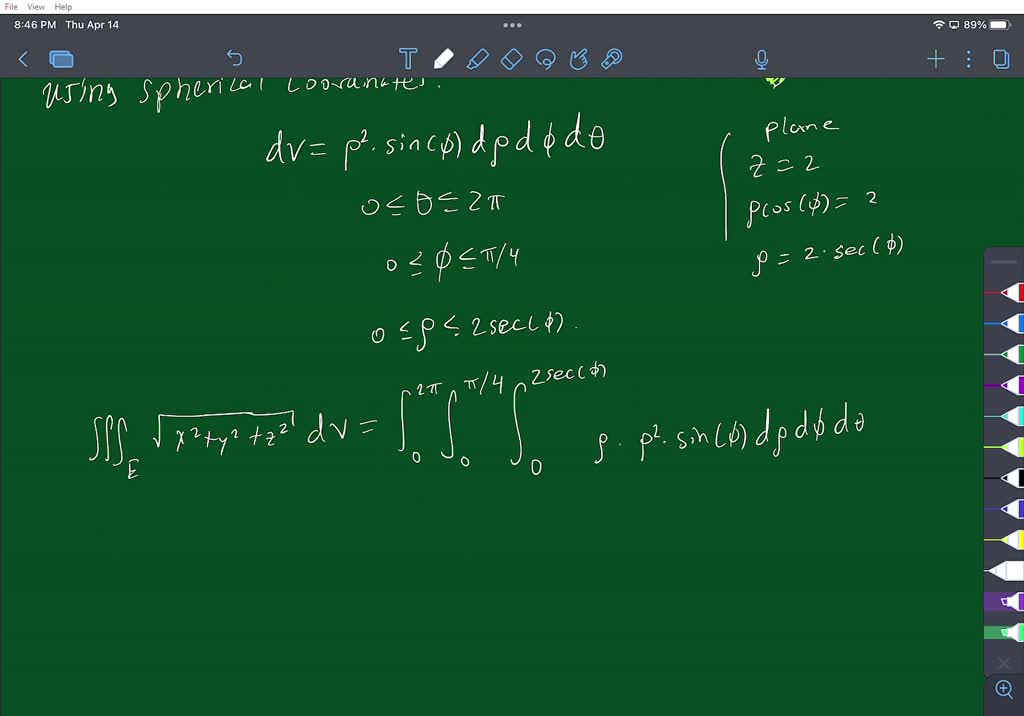 File View Help
8:46 PM Thu Apr 14
89%
T
using spherical coordinates.
dv = ρ². sin(φ) dρ dφ dθ
0 ≤ θ ≤ 2π
0 ≤ φ ≤ π/4
0 ≤ ρ ≤ 2sec(φ).
plane
z = 2
ρcos(φ) = 2
ρ = 2·sec(φ)
∭_E √(x²+y²+z²) dv = ∫_0^2π ∫_0^π/4 ∫_0^2sec(φ) ρ. ρ². sin(φ) dρ dφ dθ